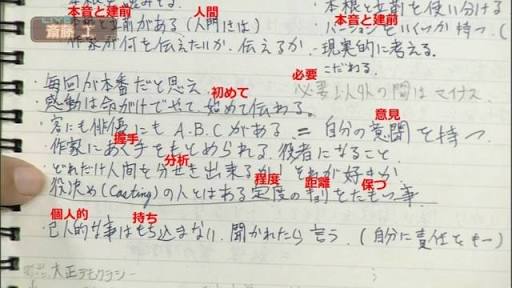 本音と建前 人間
本音と建前がある(人間には)
本音と立前を使い分ける
LIVE
斎藤 工
本音と建前
作家が何を伝えたいか、伝えるか
バージョンをいくつか持つ。(
現実的に考える。
こだわる。
・毎回が本番だと思え
必要
必要以外の間はマイナス
初めて
・感動は命がけでやって、始めて伝わる。
意見
・客にも俳優にも A.B.Cがある = 自分の意聞を持つ
握手
・作家にあく手をもとめられる役者になること
分析
・どれだけ人間を分せき出来るか それが好きか
程度 距離 保つ
役決め(Casting)の人とはある定度の割をたもつ事
個人的 持ち
・己人的な事はもち込まない。聞かれたら言う。(自分に責任をもつ)
大正デモクラシー